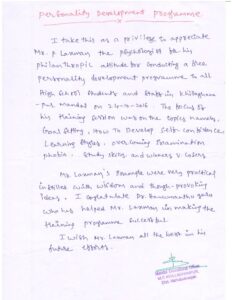 Personality Development programme
I take this as a privilege to appreciate
Mr. P Laxman the psychologist for his
philanthropic attitude for conducting a free
personality development programme to all
High School students and staff in Khilleghana-
-pur mandal on 24-9-2016. The focus of
his training session was on the topics namely,
Goal setting, How To Develop Self-confidence,
Learning styles, overcoming Examination
phobia. Study skills and winners v losers
Mr. Laxman's example were very practical
instilled with wisdom and though-provoking
ideas. I congratulate Dr. Hanumanthu garu
who has helped Mr. Laxman in making the
training programme successful
I wish Mr. Laxman all the best in his
future efforts.
Mandal Educational Officer